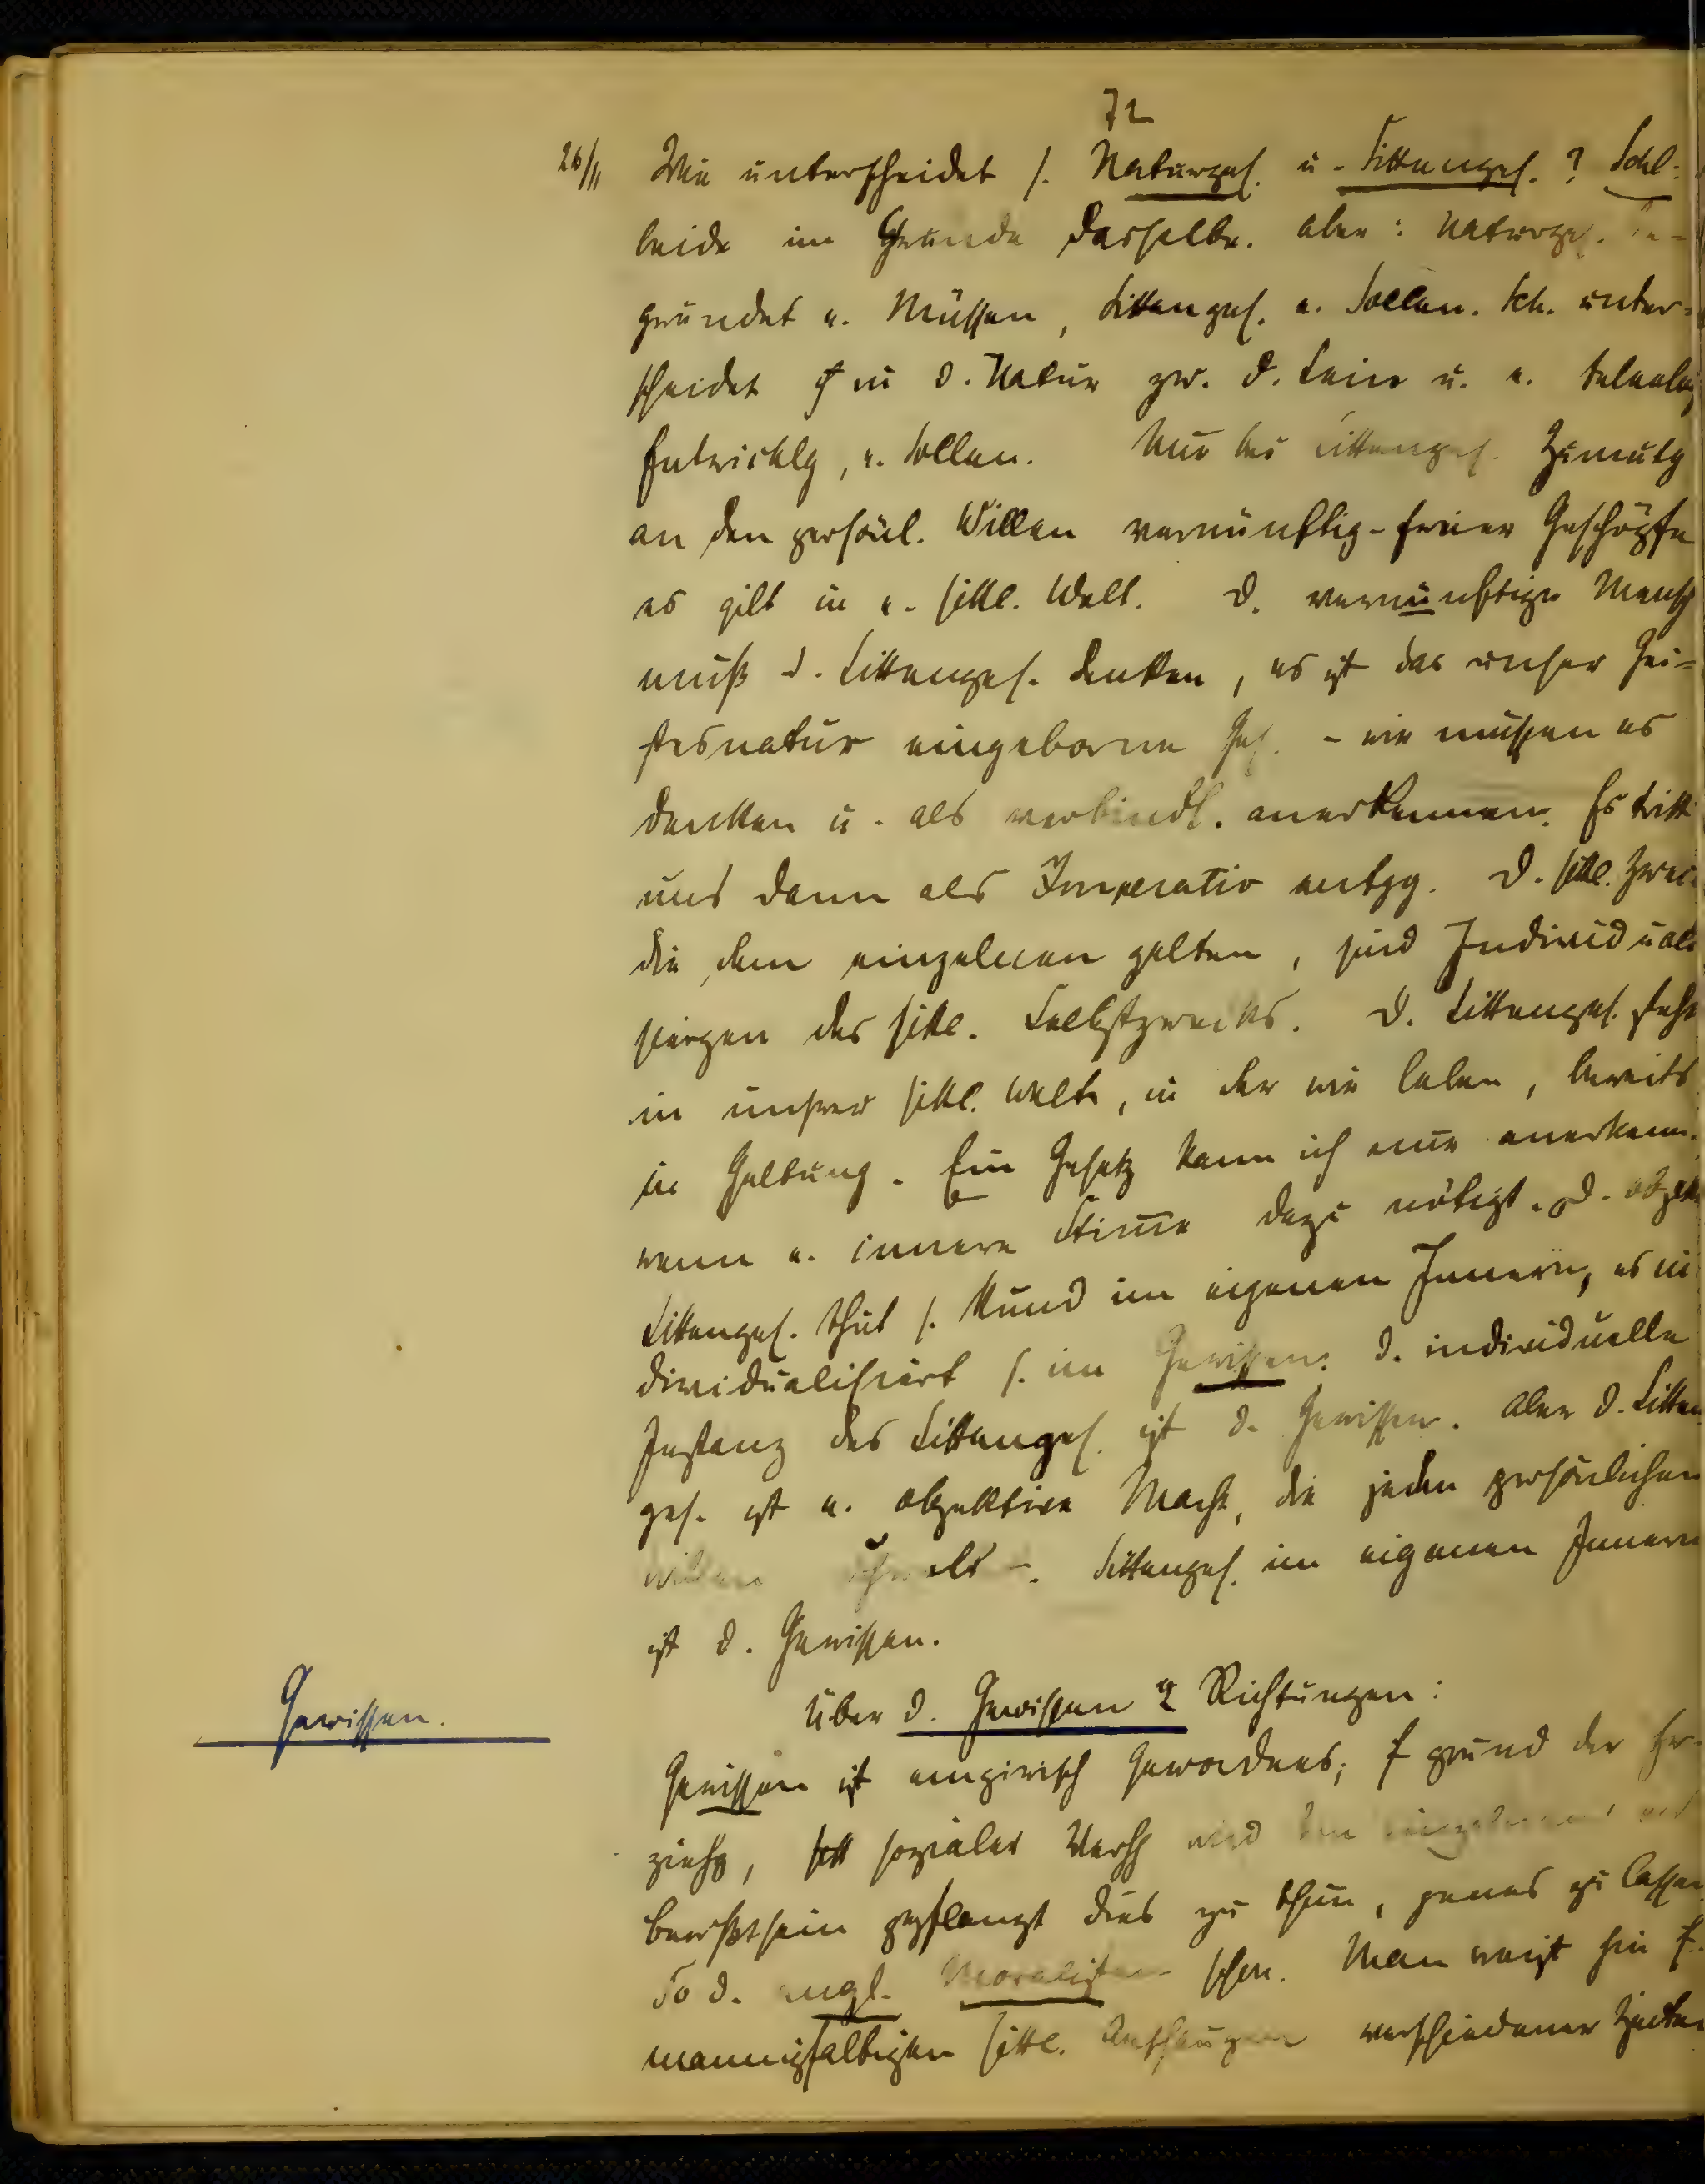 72
26/11 Wie unterscheidet s. Naturges. u. Sittenges.? Schl.:
beide im Grunde dasselbe. aber: Naturges. be-
gründet e. Müssen, Sittenges. e. Sollen. Sch. unter-
scheidet in d. Natur zw. d. Sein u. e. teleolog
Entwicklg, e. Sollen. Nur bei Sittenges. Zumutg
an den persönl. Willen vernünftig-freier Geschöpfe
es gilt in e. sittl. Welt. D. vernünftige Mensch
muß d. Sittenges. denken, es ist das unser Gei-
stesnatur eingeborne Ges. - wir müssen es
denken u. als verbindl. anerkennen. Es tritt
uns dann als Imperativ entgg. D. sittl. Zwec
die dem einzelnen gelten, sind Individuali
siergen des sittl. Selbstzwecks. D. Sittenges. steht
in unsrer sittl. Welt, in der wir leben, bereits
in Geltung. Ein Gesetz kann ich nur anerkenn.
wenn e. innere Stimme dazu nötigt. D. objek
Sittenges. thut s. kund im eigenen Innern, es in
dividualisiert s. im Gewissen. D. individuelle
Instanz des Sittenges. ist d. Gewissen. Aber d. Sitten
ges. ist e. objektive Macht, die jeden persönlichen
Sittenges. im eigenen Innern
ist d. Gewissen.
Über d. Gewissen 2 Richtungen:
Gewissen.
Gewissen ist empirisch Gewordnes; f grund der Er-
ziehg, sozialer Verh wird dem einzelnen
bewußtsein gepflanzt dies zu thun, jenes zu lassen
So d. engl. Moralisten schon. Man weist hin f.
mannigfaltigen sittl. Anschaugen verschiedener Zeiten